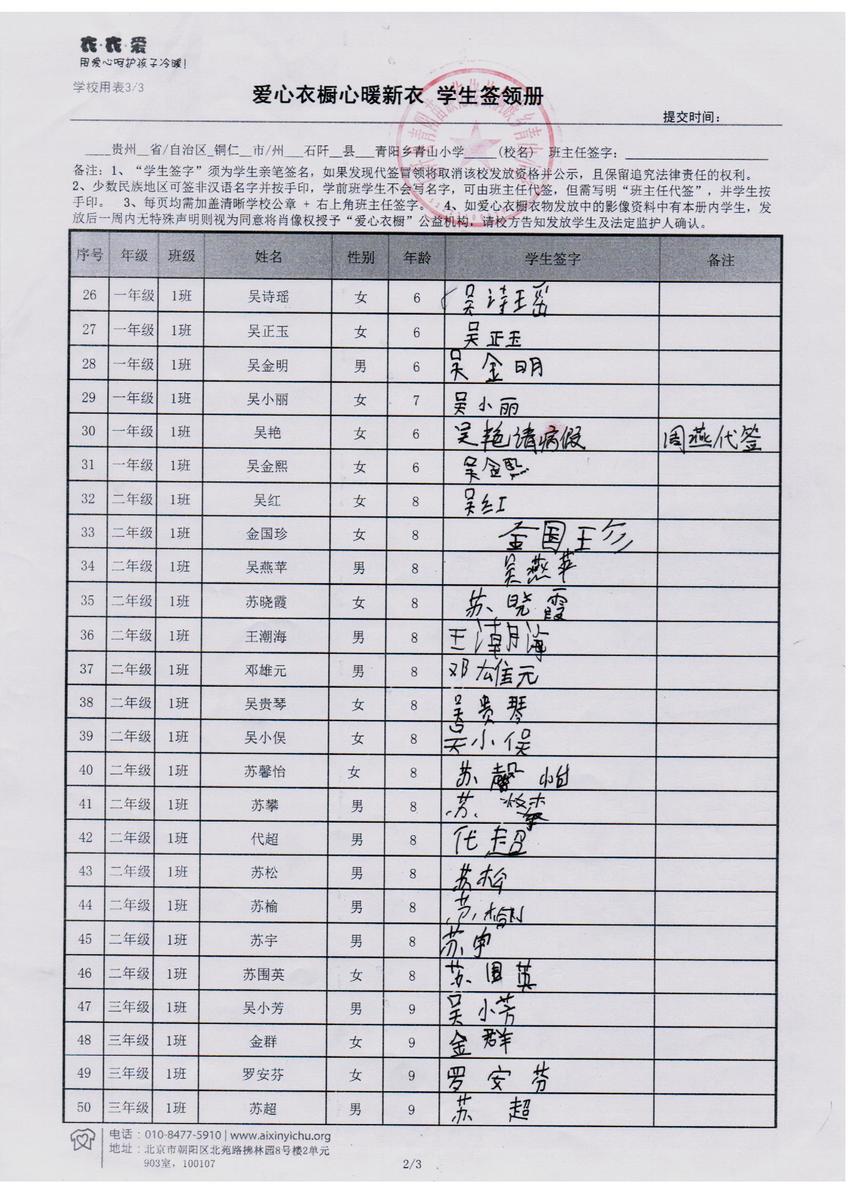 衣·衣·爱
用爱心呵护孩子冷暖!
学校用表3/3
爱心衣橱心暖新衣 学生签领册
提交时间:
____贵州__省/自治区_铜仁__市/州___石阡__县___青阳乡青山小学_____(校名) 班主任签字:
备注:1、“学生签字”须为学生亲笔签名,如果发现代签冒领将取消该校发放资格并公示,且保留追究法律责任的权利。
2、少数民族地区可签非汉语名字并按手印,学前班学生不会写名字,可由班主任代签,但需写明“班主任代签”,并学生按
手印。 3、每页均需加盖清晰学校公章 + 右上角班主任签字。 4、如爱心衣橱衣物发放中的影像资料中有本册内学生,发
放后一周内无特殊声明则视为同意将肖像权授予“爱心衣橱”公益机构,请校方告知发放学生及法定监护人确认。
序号 年级 班级 姓名 性别 年龄 学生签字 备注
26 一年级 1班 吴诗瑶 女 6 吴诗瑶
27 一年级 1班 吴正玉 女 6 吴正玉
28 一年级 1班 吴金明 男 6 吴金明
29 一年级 1班 吴小丽 女 7 吴小丽
30 一年级 1班 吴艳 女 6 吴艳请病假 周燕代签
31 一年级 1班 吴金熙 女 6 吴金熙
32 二年级 1班 吴红 女 8 吴红
33 二年级 1班 金国珍 女 8 金国珍
34 二年级 1班 吴燕苹 男 8 吴燕苹
35 二年级 1班 苏晓霞 女 8 苏晓霞
36 二年级 1班 王潮海 男 8 王潮海
37 二年级 1班 邓雄元 男 8 邓雄元
38 二年级 1班 吴贵琴 女 8 吴贵琴
39 二年级 1班 吴小俣 女 8 吴小俣
40 二年级 1班 苏馨怡 女 8 苏馨怡
41 二年级 1班 苏攀 男 8 苏攀
42 二年级 1班 代超 男 8 代超
43 二年级 1班 苏松 男 8 苏松
44 二年级 1班 苏榆 男 8 苏榆
45 二年级 1班 苏宇 男 8 苏宇
46 二年级 1班 苏围英 女 8 苏围英
47 三年级 1班 吴小芳 男 9 吴小芳
48 三年级 1班 金群 女 9 金群
49 三年级 1班 罗安芬 女 9 罗安芬
50 三年级 1班 苏超 男 9 苏超
电话:010-8477-5910 | www.aixinyichu.org
地址:北京市朝阳区北苑路拂林园8号楼2单元
903室,100107
2/3